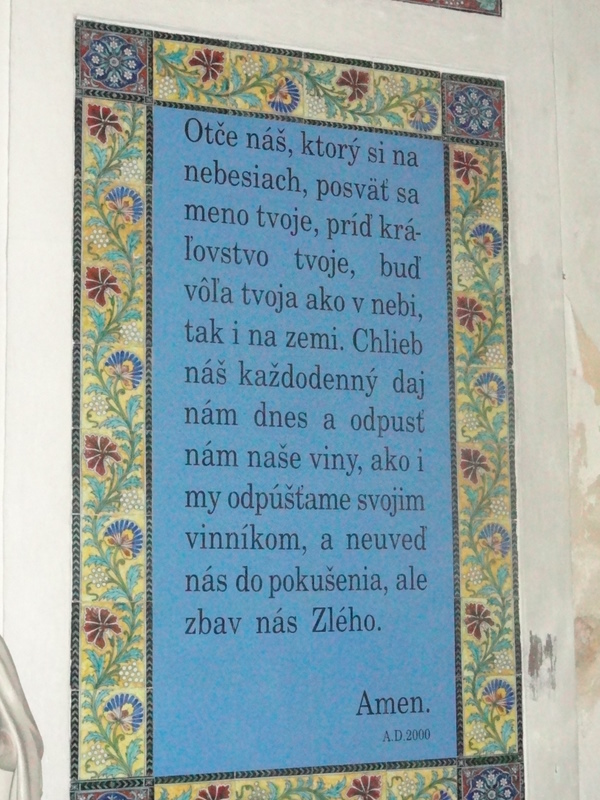 Otče náš, ktorý si na
nebesiach, posväť sa
meno tvoje, príď krá-
ľovstvo tvoje, buď
vôľa tvoja ako v nebi,
tak i na zemi. Chlieb
náš každodenný daj
nám dnes a odpusť
nám naše viny, ako i
my odpúšťame svojim
vinníkom, a neuveď
nás do pokušenia, ale
zbav nás Zlého.
Amen.
A.D.2000